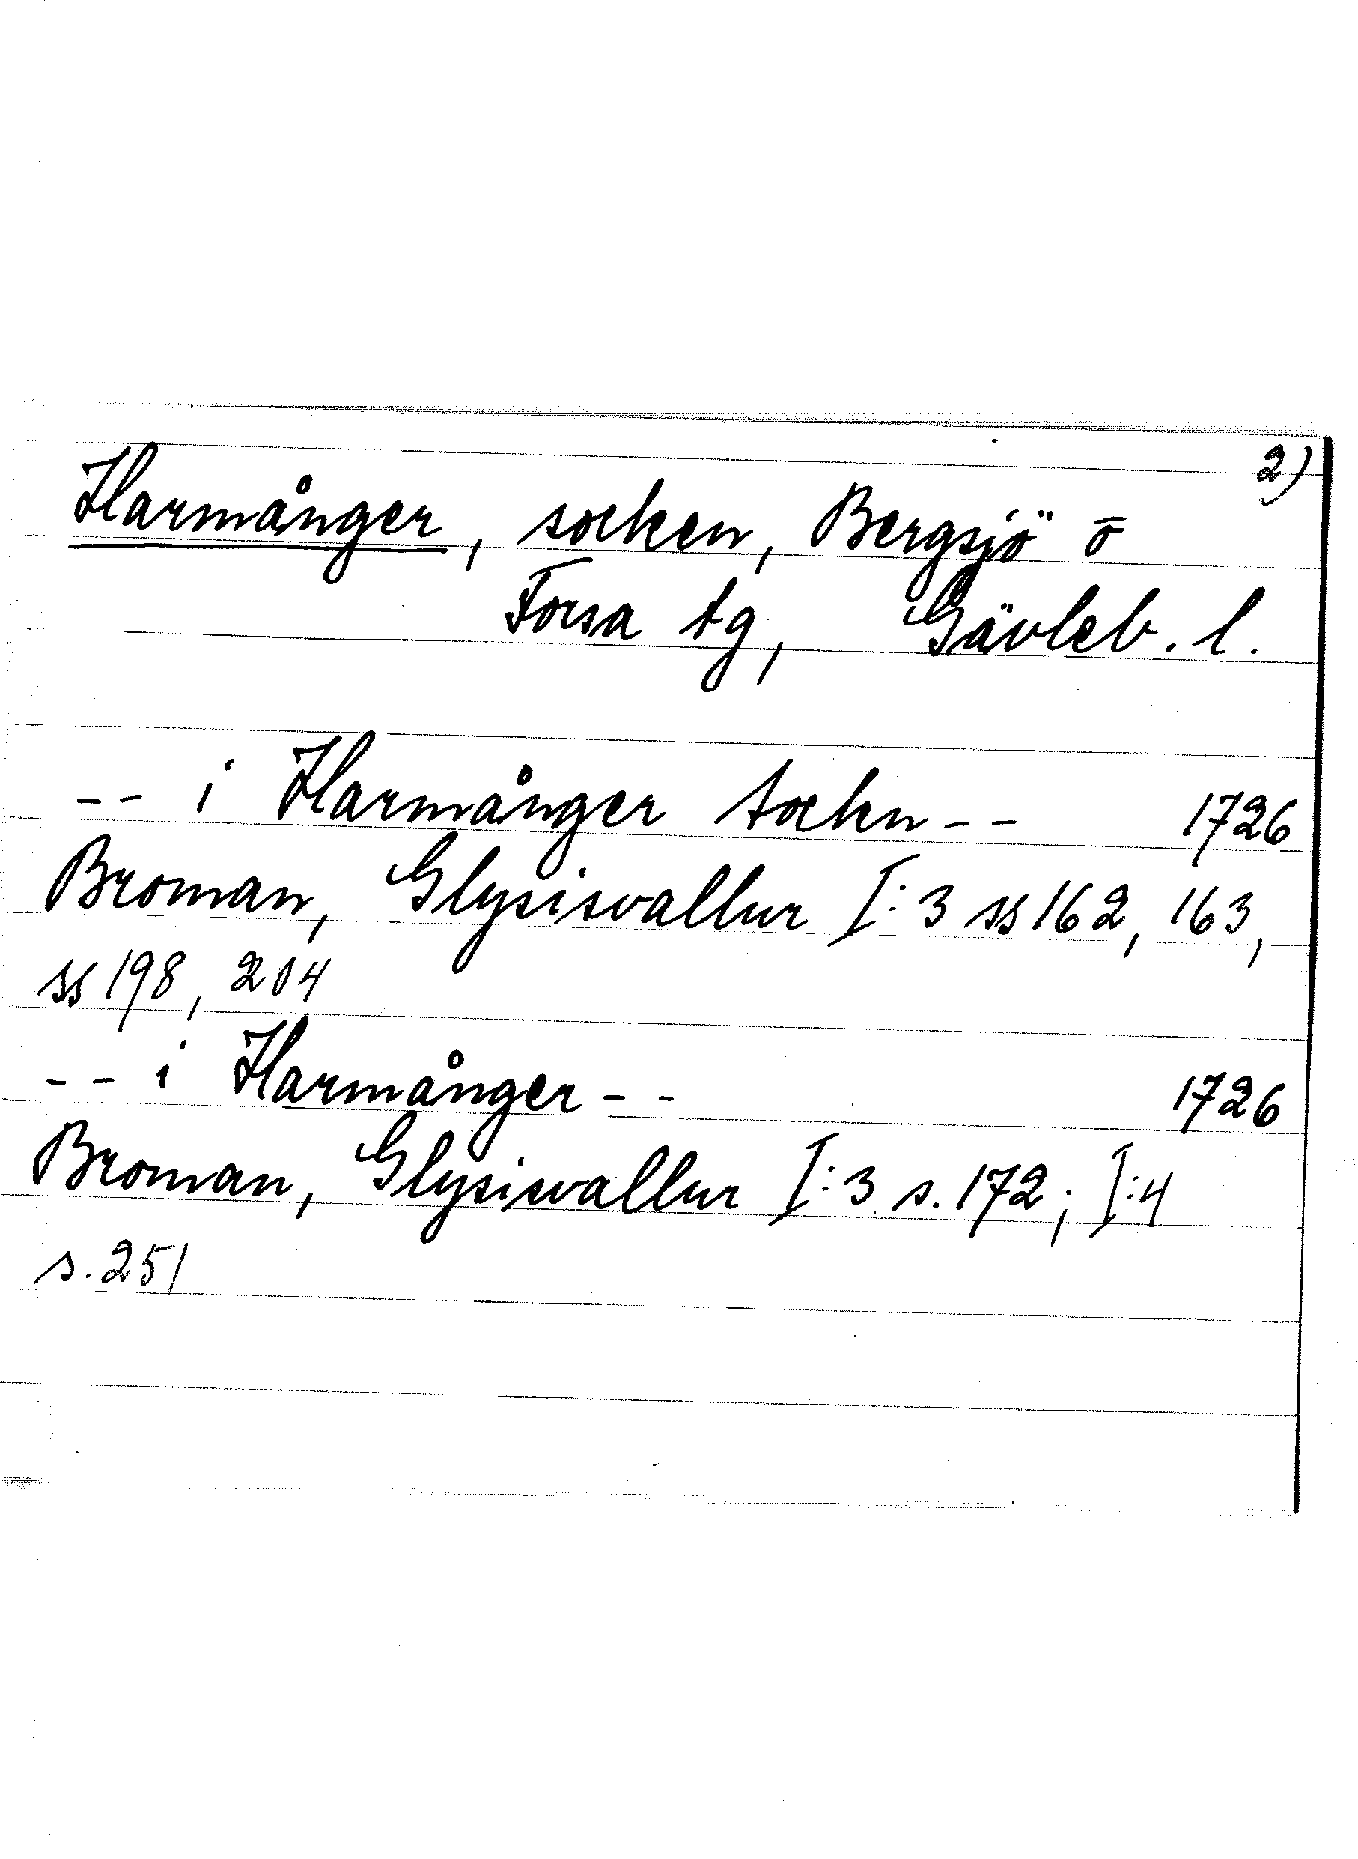 2)
Harmånger, socken, Bergsjö o
Forsa tg, Gävleb. l.
-- i Harmånger sockn -- 1726
Broman, Glysisvallur I:3 ss 162, 163,
ss 198, 204
-- i Harmånger -- 1726
Broman, Glysisvallur I:3 s. 172; I:4
s. 251